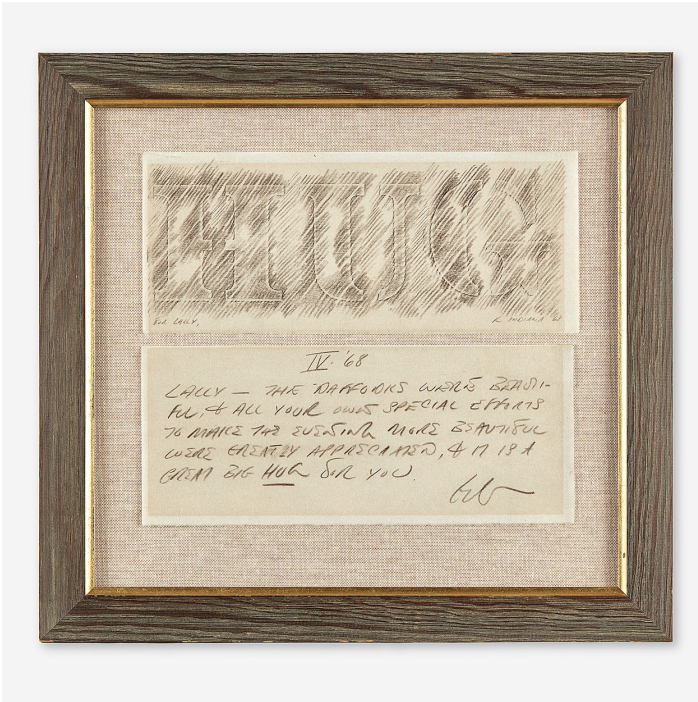 HUG
FOR LALLY,
R INDIANA '68
IV. '68
LALLY — THE DAFFODILS WERE BEAUTI-
FUL, & ALL YOUR OWN SPECIAL EFFORTS
TO MAKE THE EVENING MORE BEAUTIFUL
WERE GREATLY APPRECIATED, &
GREAT BIG HUG FOR YOU.